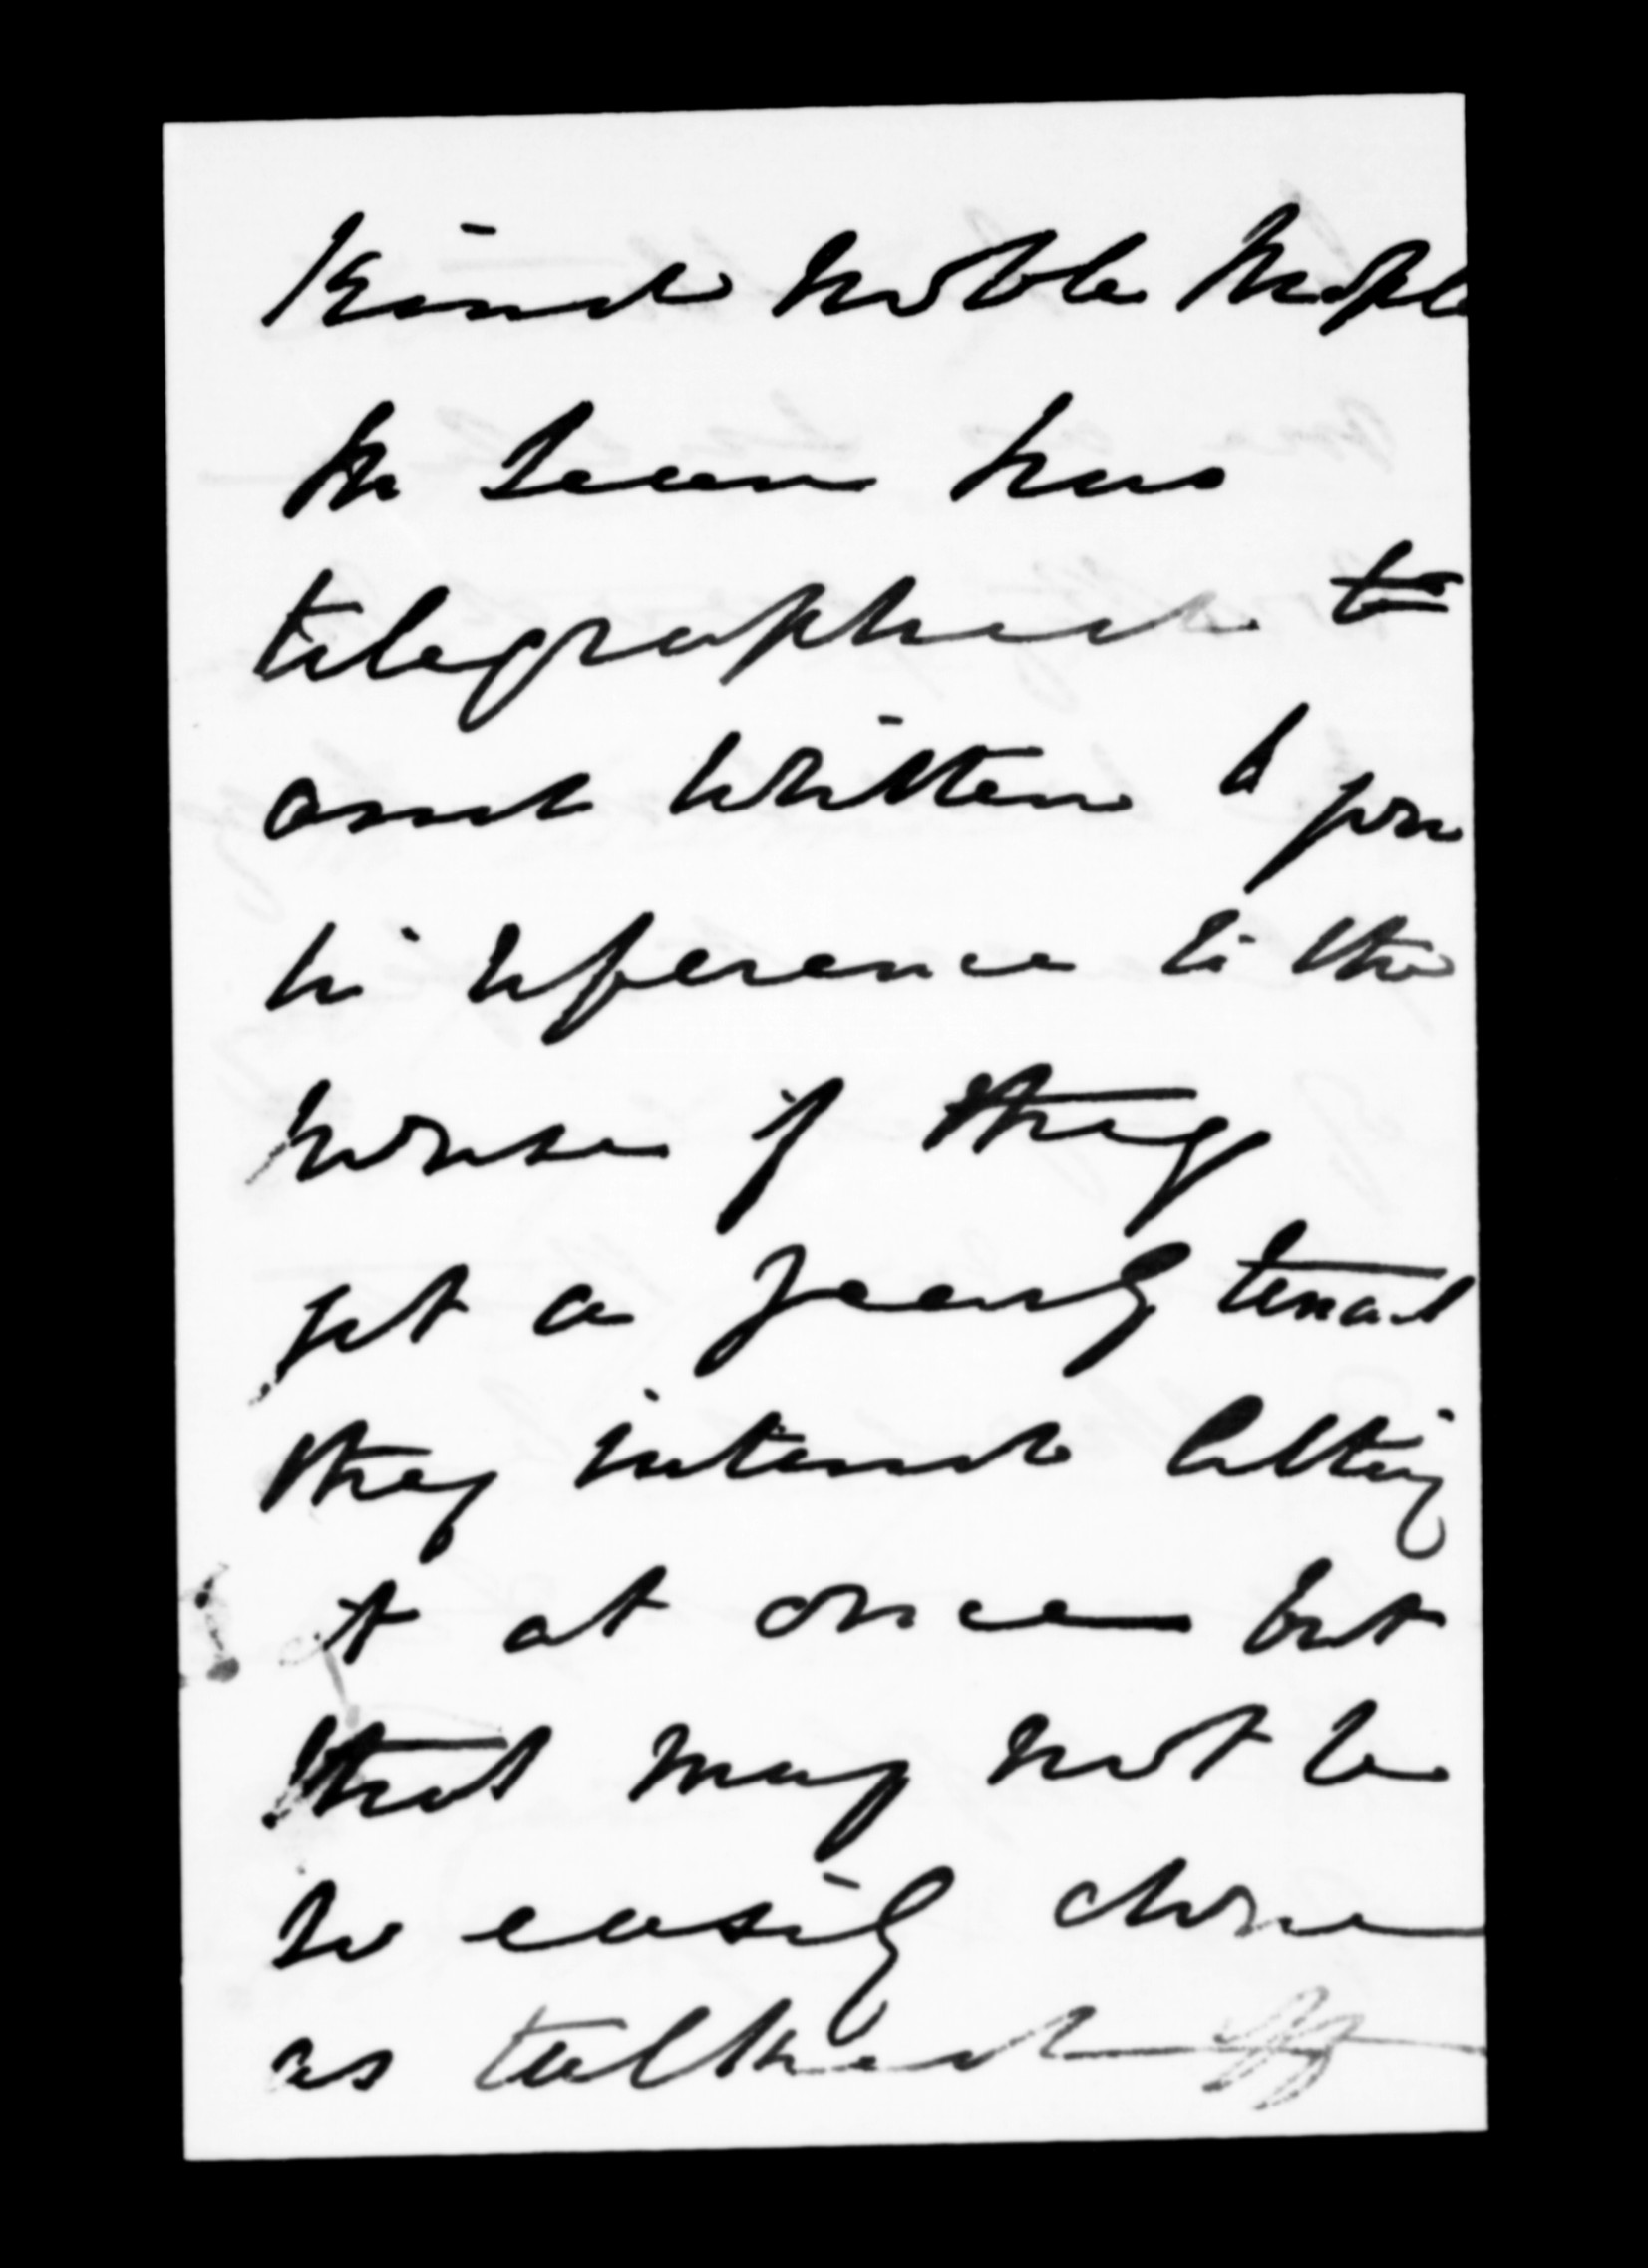 kind noble people
Mr Levin has
telegraphed to
and written to you
in reference to the
house if they
get a good tenant
they intend letting
it at once but
that may not be
so easily done
as talked of